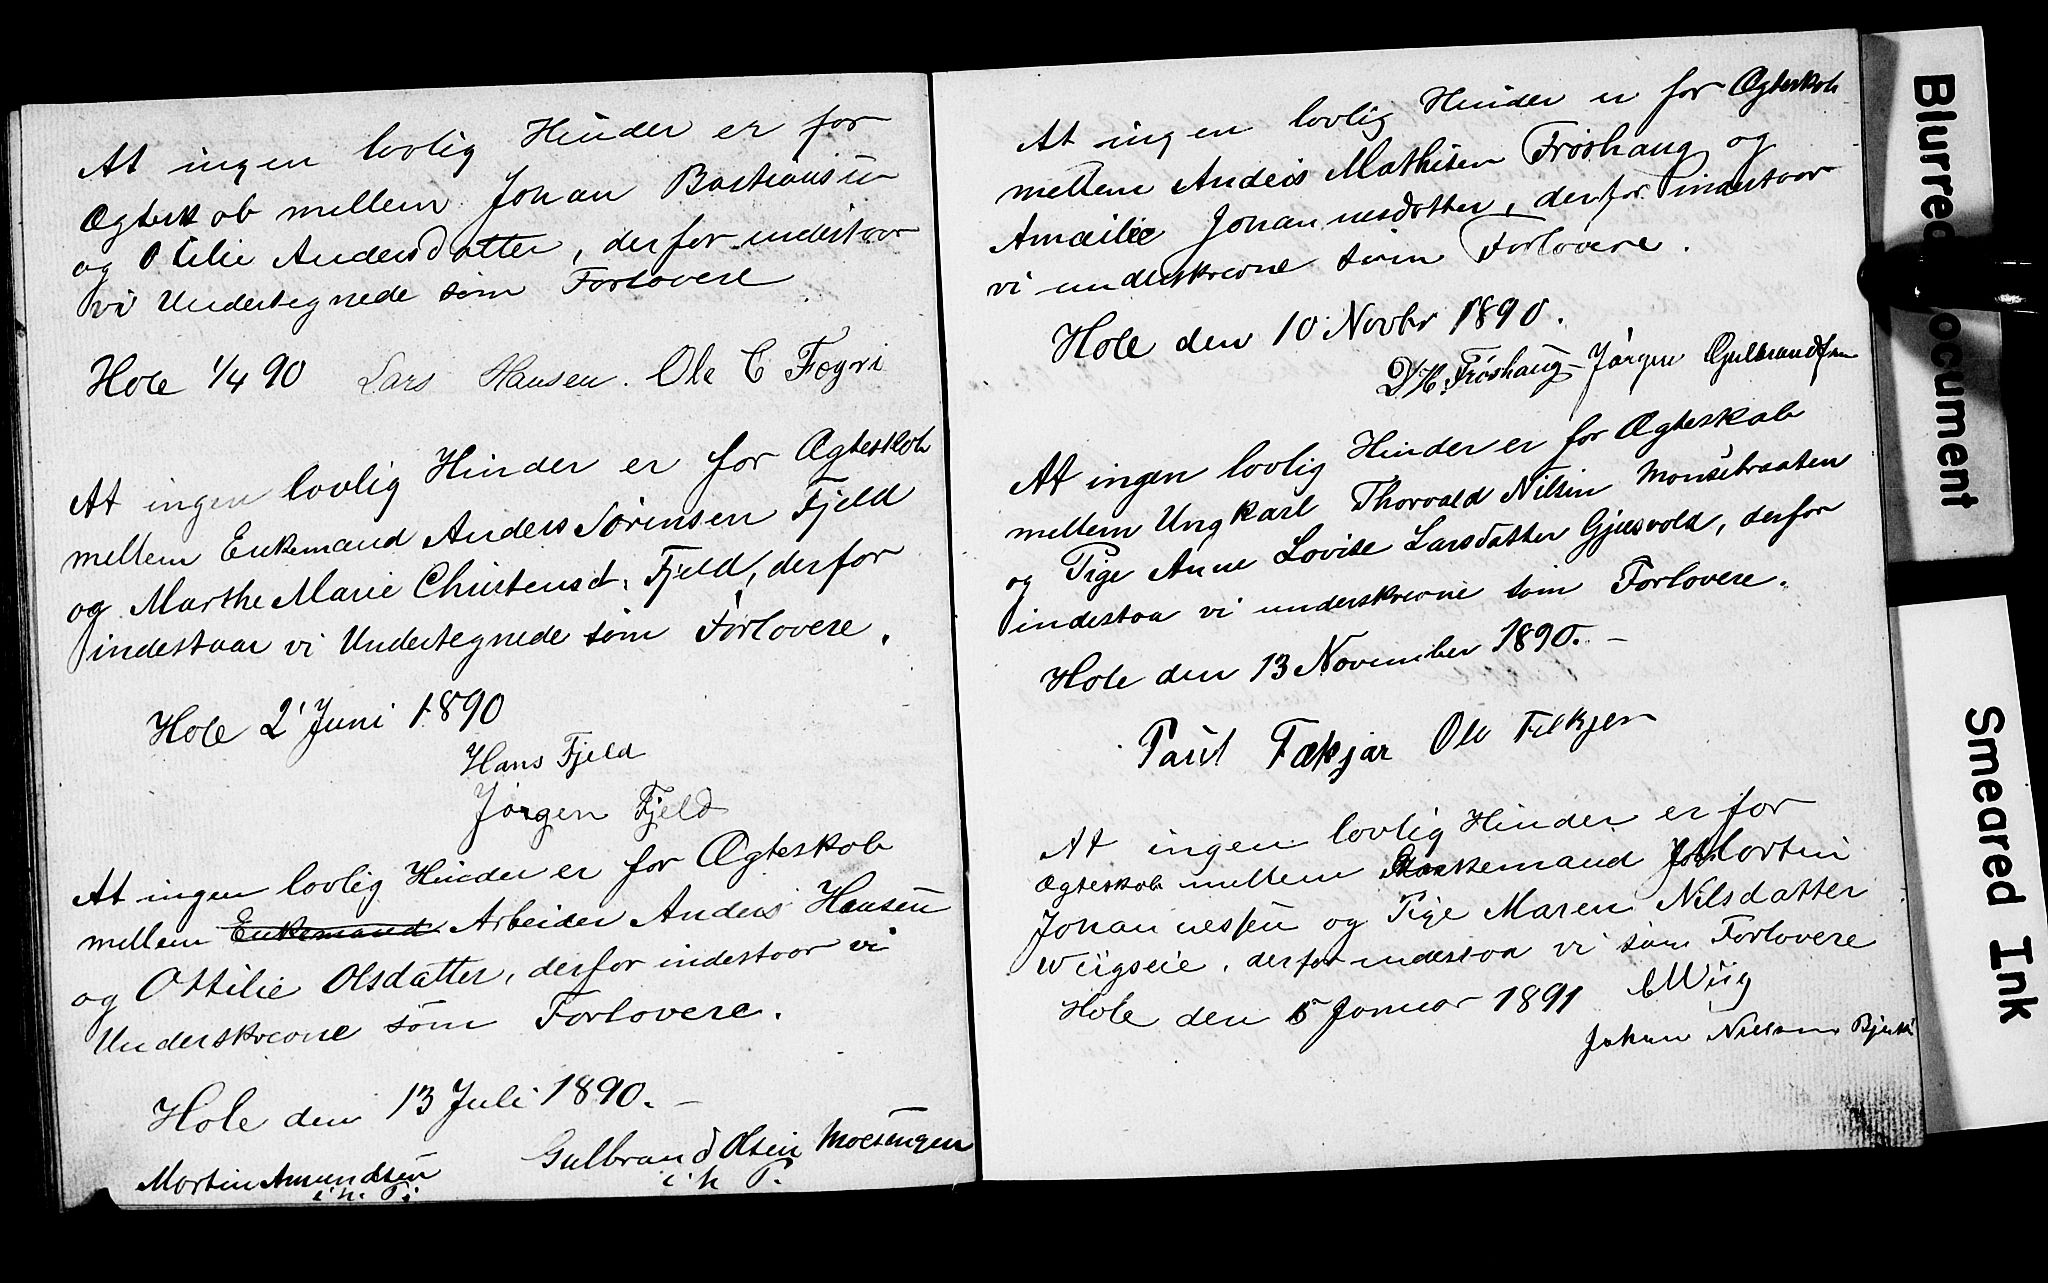 At ingen lovlig Hinder er for
Ægteskab mellem Johan Bastiansen
og Otilie Andersdatter, derfor indestaar
vi Undertegnede som Forlovere
Hole 1/4 90 Lars Hansen. Ole C Fægri
At ingen lovlig Hinder er for Ægteskab
mellem Enkemand Anders Sørensen Fjeld
og Marthe Marie Christensd. Fjeld, derfor
indestaar vi Undertegnede som Forlovere.
Hole 2' Juni 1890
Hans Fjeld
Jørgen Fjeld
At ingen lovlig Hinder er for Ægteskab
mellem Enkemand Arbeider Anders Hansen
og Ottilie Olsdatter, derfor indestaar vi
Underskrevne som Forlovere.
Hole den 13 Juli 1890. –
Gulbrand Olsen Moesengen
Martin Amundsen
i. h. P. i h P.
At ingen lovlig Hinder er for Ægteskab
mellem Anders Mathisen Frøshaug og
Amalie Johannesdatter, derfor indestaar
vi underskrevne som Forlovere.
Hole den 10 Novbr 1890.
Frøshaug – Jørgen Gulbrandsen
At ingen lovlig Hinder er for Ægteskab
mellem Ungkarl Thorvald Nilsen Monsebraaten
og Pige Anne Lovise Larsdatter Gjesvold, derfor
indestaa vi underskrevne som Forlovere.
Hole den 13 November 1890. –
Paul Fækjær Ole Fekjær
At ingen lovlig Hinder er for
Ægteskab mellem Enkemand Martin
Johannessen og Pige Maren Nilsdatter
Wiigseie, derfor indestaa vi som Forlovere
Hole den 5 Januar 1891 Wiig
Johan Nielsen
Blurred Document
Smeared Ink